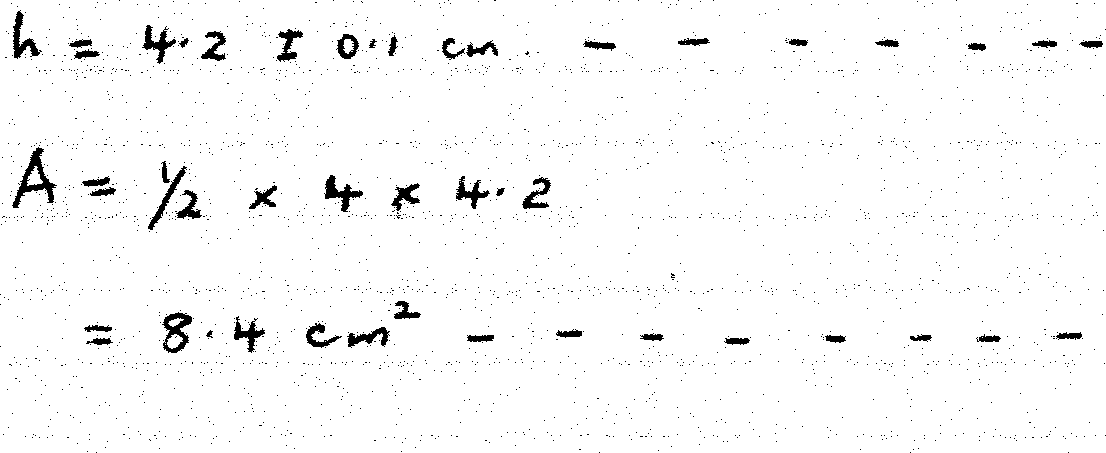 h = 4.2 ± 0.1 cm. - - - - - - -
A = 1/2 × 4 × 4.2
= 8.4 cm² - - - - - - - -